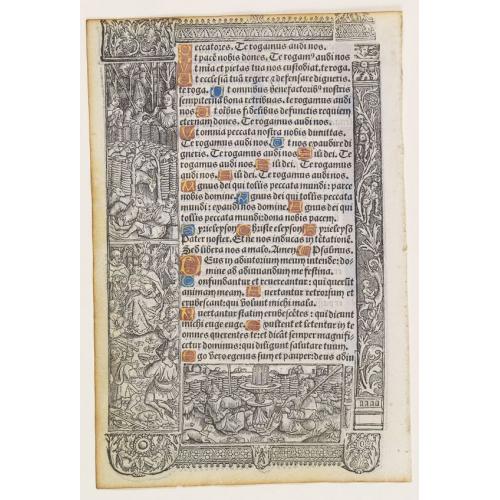 Peccatores. Te rogamus audi nos.
Ut pacē nobis dones. Te rogam⁹ audi nos.
Ut mīa et pietas tua nos custodiat. te roga.
Ut ecclesiā tuā regere ⁊ defensare digneris.
te roga. Ut omnibus benefactorib⁹ nostris
sempiterna bona retribuas. te rogamus audi
nos. Ut oīb⁹ fidelibus defunctis requiem
eternam dones. Te rogamus audi nos.
Ut omnia peccata nostra nobis dimittas.
Te rogamus audi nos. Ut nos exaudire di
gneris. Te rogamus audi nos. Fili dei. Te
rogamus audi nos. Fili dei. Te rogamus
audi nos. Fili dei. Te rogamus audi nos.
Agnus dei qui tollis peccata mundi: parce
nobis domine. Agnus dei qui tollis peccata
mundi: exaudi nos domine. Agnus dei qui
tollis peccata mundi: dona nobis pacem.
Kyrieleyson Christe eleyson Kyrieleysō
Pater noster. Et ne nos inducas in tētationē.
Sed libera nos a malo. Amen. Psalmus.
Deus in adiutorium meum intende: do-
mine ad adiuvandum me festina.
Confundantur et revereantur: qui querūt
animam meam. Avertantur retrorsum et
erubescant: qui volunt michi mala.
Avertantur statim erubescētes: qui dicunt
michi euge euge. Exultent et letentur in te
omnes querentes te: et dicāt semper magnifi-
cetur dominus: qui diligunt salutare tuum.
Ego vero egenus sum et pauper: deus adiu